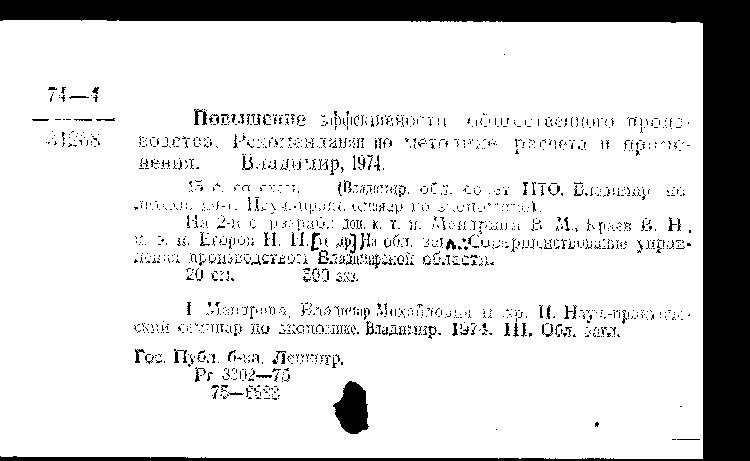 74—4
Повышение эффективности общественного произ-
водства. Рекомендации по методике расчета и приме-
нения. Владимир, 1974.
15 с. со схем. (Владимир. обл. совет НТО. Владимир.
На 2-й с. разраб.: доц. к. т. н. В. М., Краев В. Н.,
к. э. н. Егоров Н. Н. [и др.] На обл. загл.: Совершенствование управ-
ления производством Владимирской области.
20 см. 500 экз.
I. Владимир Михайлович и др. II. Науч.-практиче-
ский семинар по экономике. Владимир. 1974. III. Обл. загл.
Гос. Публ. б-ка. Ленингр.
Рг 3302—75